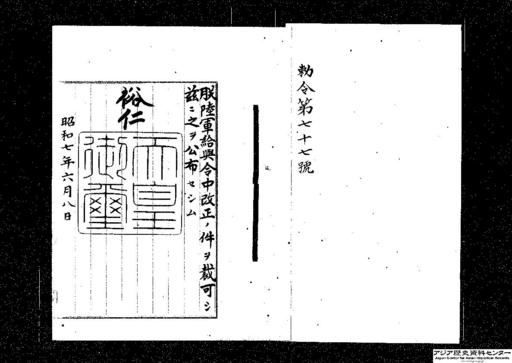 勅令第七十七號
朕陸軍給與令中改正ノ件ヲ裁可シ
茲ニ之ヲ公布セシム
裕仁
天皇
御璽
昭和七年六月八日
アジア歴史資料センター
Japan Center for Asian Historical Records